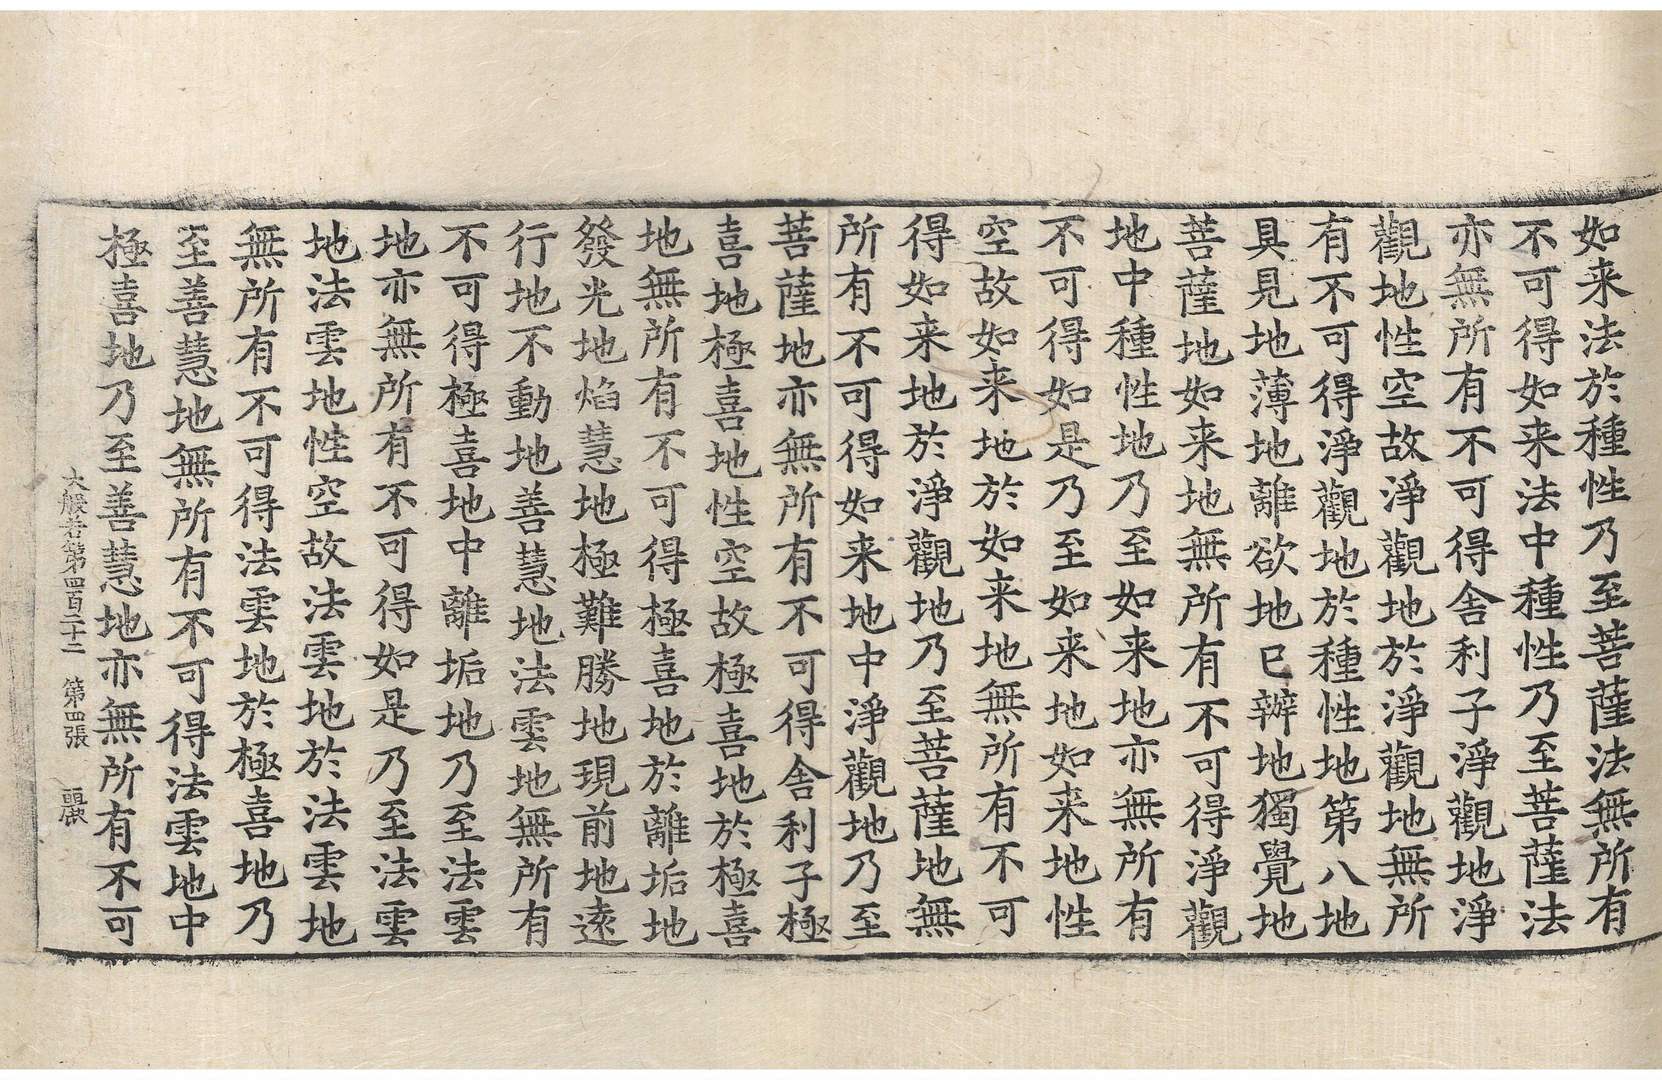 如来法於種性乃至菩薩法無所有
不可得如来法中種性乃至菩薩法
亦無所有不可得舍利子淨觀地淨
觀地性空故淨觀地於淨觀地無所
有不可得淨觀地於種性地第八地
具見地薄地離欲地已辦地獨覺地
菩薩地如来地無所有不可得淨觀
地中種性地乃至如来地亦無所有
不可得如是乃至如来地如来地性
空故如来地於如来地無所有不可
得如来地於淨觀地乃至菩薩地無
所有不可得如来地中淨觀地乃至
菩薩地亦無所有不可得舍利子極
喜地極喜地性空故極喜地於極喜
地無所有不可得極喜地於離垢地
發光地焰慧地極難勝地現前地遠
行地不動地善慧地法雲地無所有
不可得極喜地中離垢地乃至法雲
地亦無所有不可得如是乃至法雲
地法雲地性空故法雲地於法雲地
無所有不可得法雲地於極喜地乃
至善慧地無所有不可得法雲地中
極喜地乃至善慧地亦無所有不可
大般若第四百二十二 第四張 麗